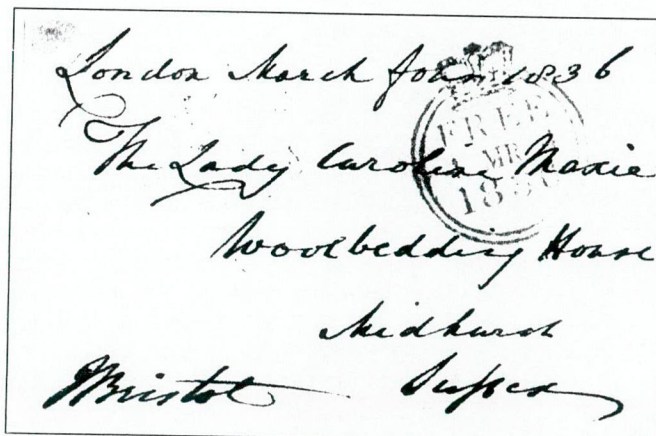 London March four 1836
FREE
MR
The Lady Caroline Maxse
Woolbedding House
Midhurst
Bristol Sussex